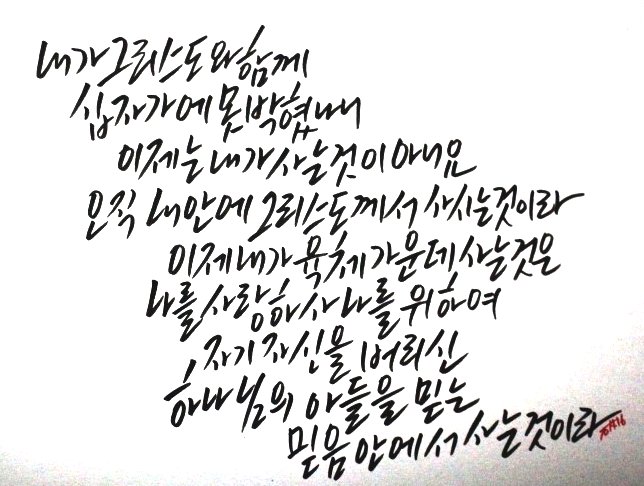 내가 그리스도와 함께
십자가에 못 박혔나니
이제는 내가 사는 것이 아니요
오직 내 안에 그리스도께서 사시는 것이라
이제 내가 육체 가운데 사는 것은
나를 사랑하사 나를 위하여
자기 자신을 버리신
하나님의 아들을 믿는
믿음 안에서 사는 것이라